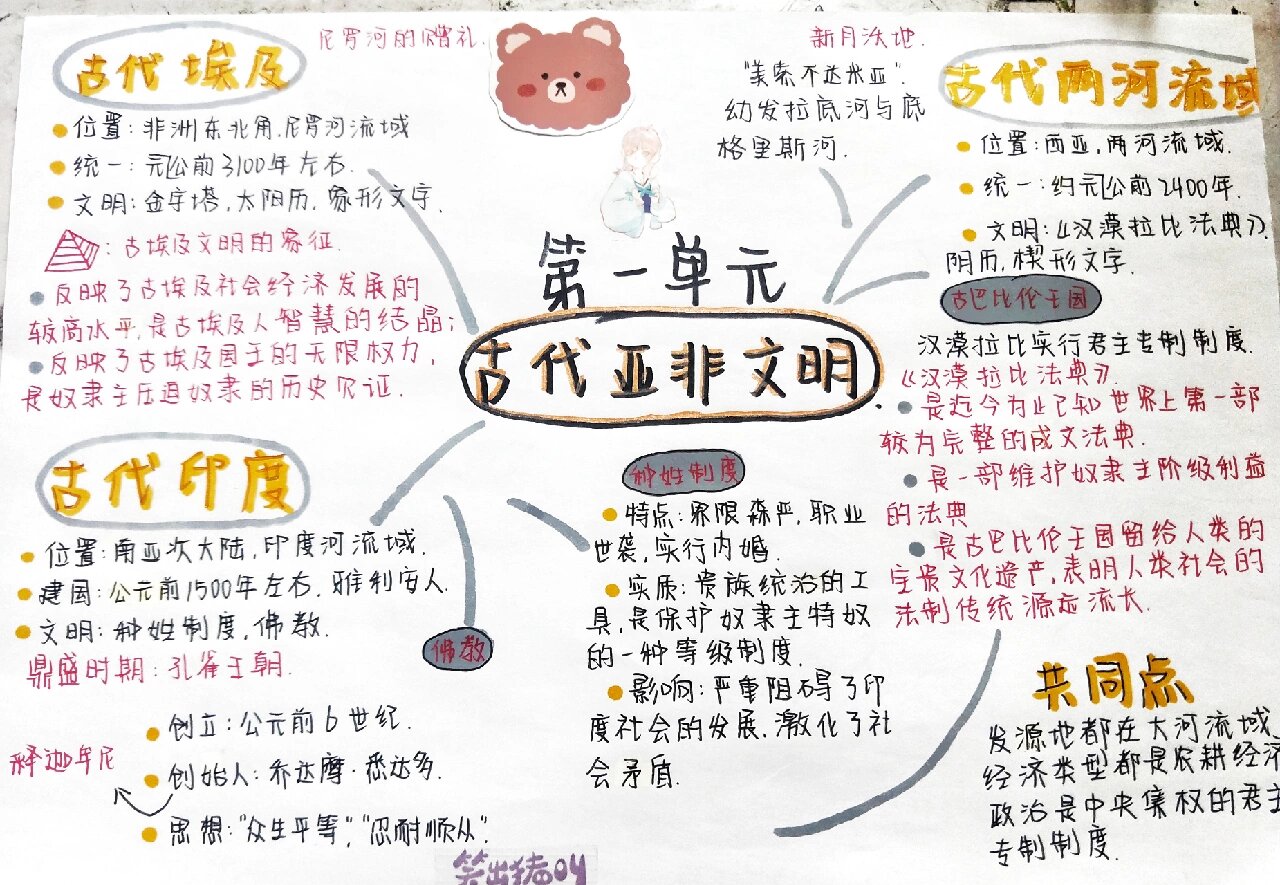 第一单元
古代亚非文明
古代埃及
尼罗河的赠礼.
位置:非洲东北角,尼罗河流域
统一:元公前3100年左右.
文明:金字塔,太阳历,象形文字.
:古埃及文明的象征.
反映了古埃及社会经济发展的
较高水平,是古埃及人智慧的结晶;
反映了古埃及国王的无限权力,
是奴隶主压迫奴隶的历史见证.
新月沃地.
“美索不达米亚”.
幼发拉底河与底
格里斯河.
古代两河流域
位置:西亚,两河流域.
统一:约元公前2400年.
文明:《汉谟拉比法典》.
阴历,楔形文字.
古巴比伦王国
汉谟拉比实行君主专制制度.
《汉谟拉比法典》.
是迄今为止已知世界上第一部
较为完整的成文法典.
是一部维护奴隶主阶级利益
的法典
是古巴比伦王国留给人类的
宝贵文化遗产,表明人类社会的
法制传统源远流长.
古代印度
位置:南亚次大陆,印度河流域.
建国:公元前1500年左右,雅利安人.
文明:种姓制度,佛教.
鼎盛时期:孔雀王朝.
佛教
创立:公元前6世纪.
释迦牟尼
创始人:乔达摩·悉达多.
思想:“众生平等”,“忍耐顺从”.
种姓制度
特点:界限森严,职业
世袭,实行内婚.
实质:贵族统治的工
具,是保护奴隶主特奴
的一种等级制度.
影响:严重阻碍了印
度社会的发展,激化了社
会矛盾.
共同点
发源地都在大河流域,
经济类型都是农耕经济
政治是中央集权的君主
专制制度.
笑出猪04